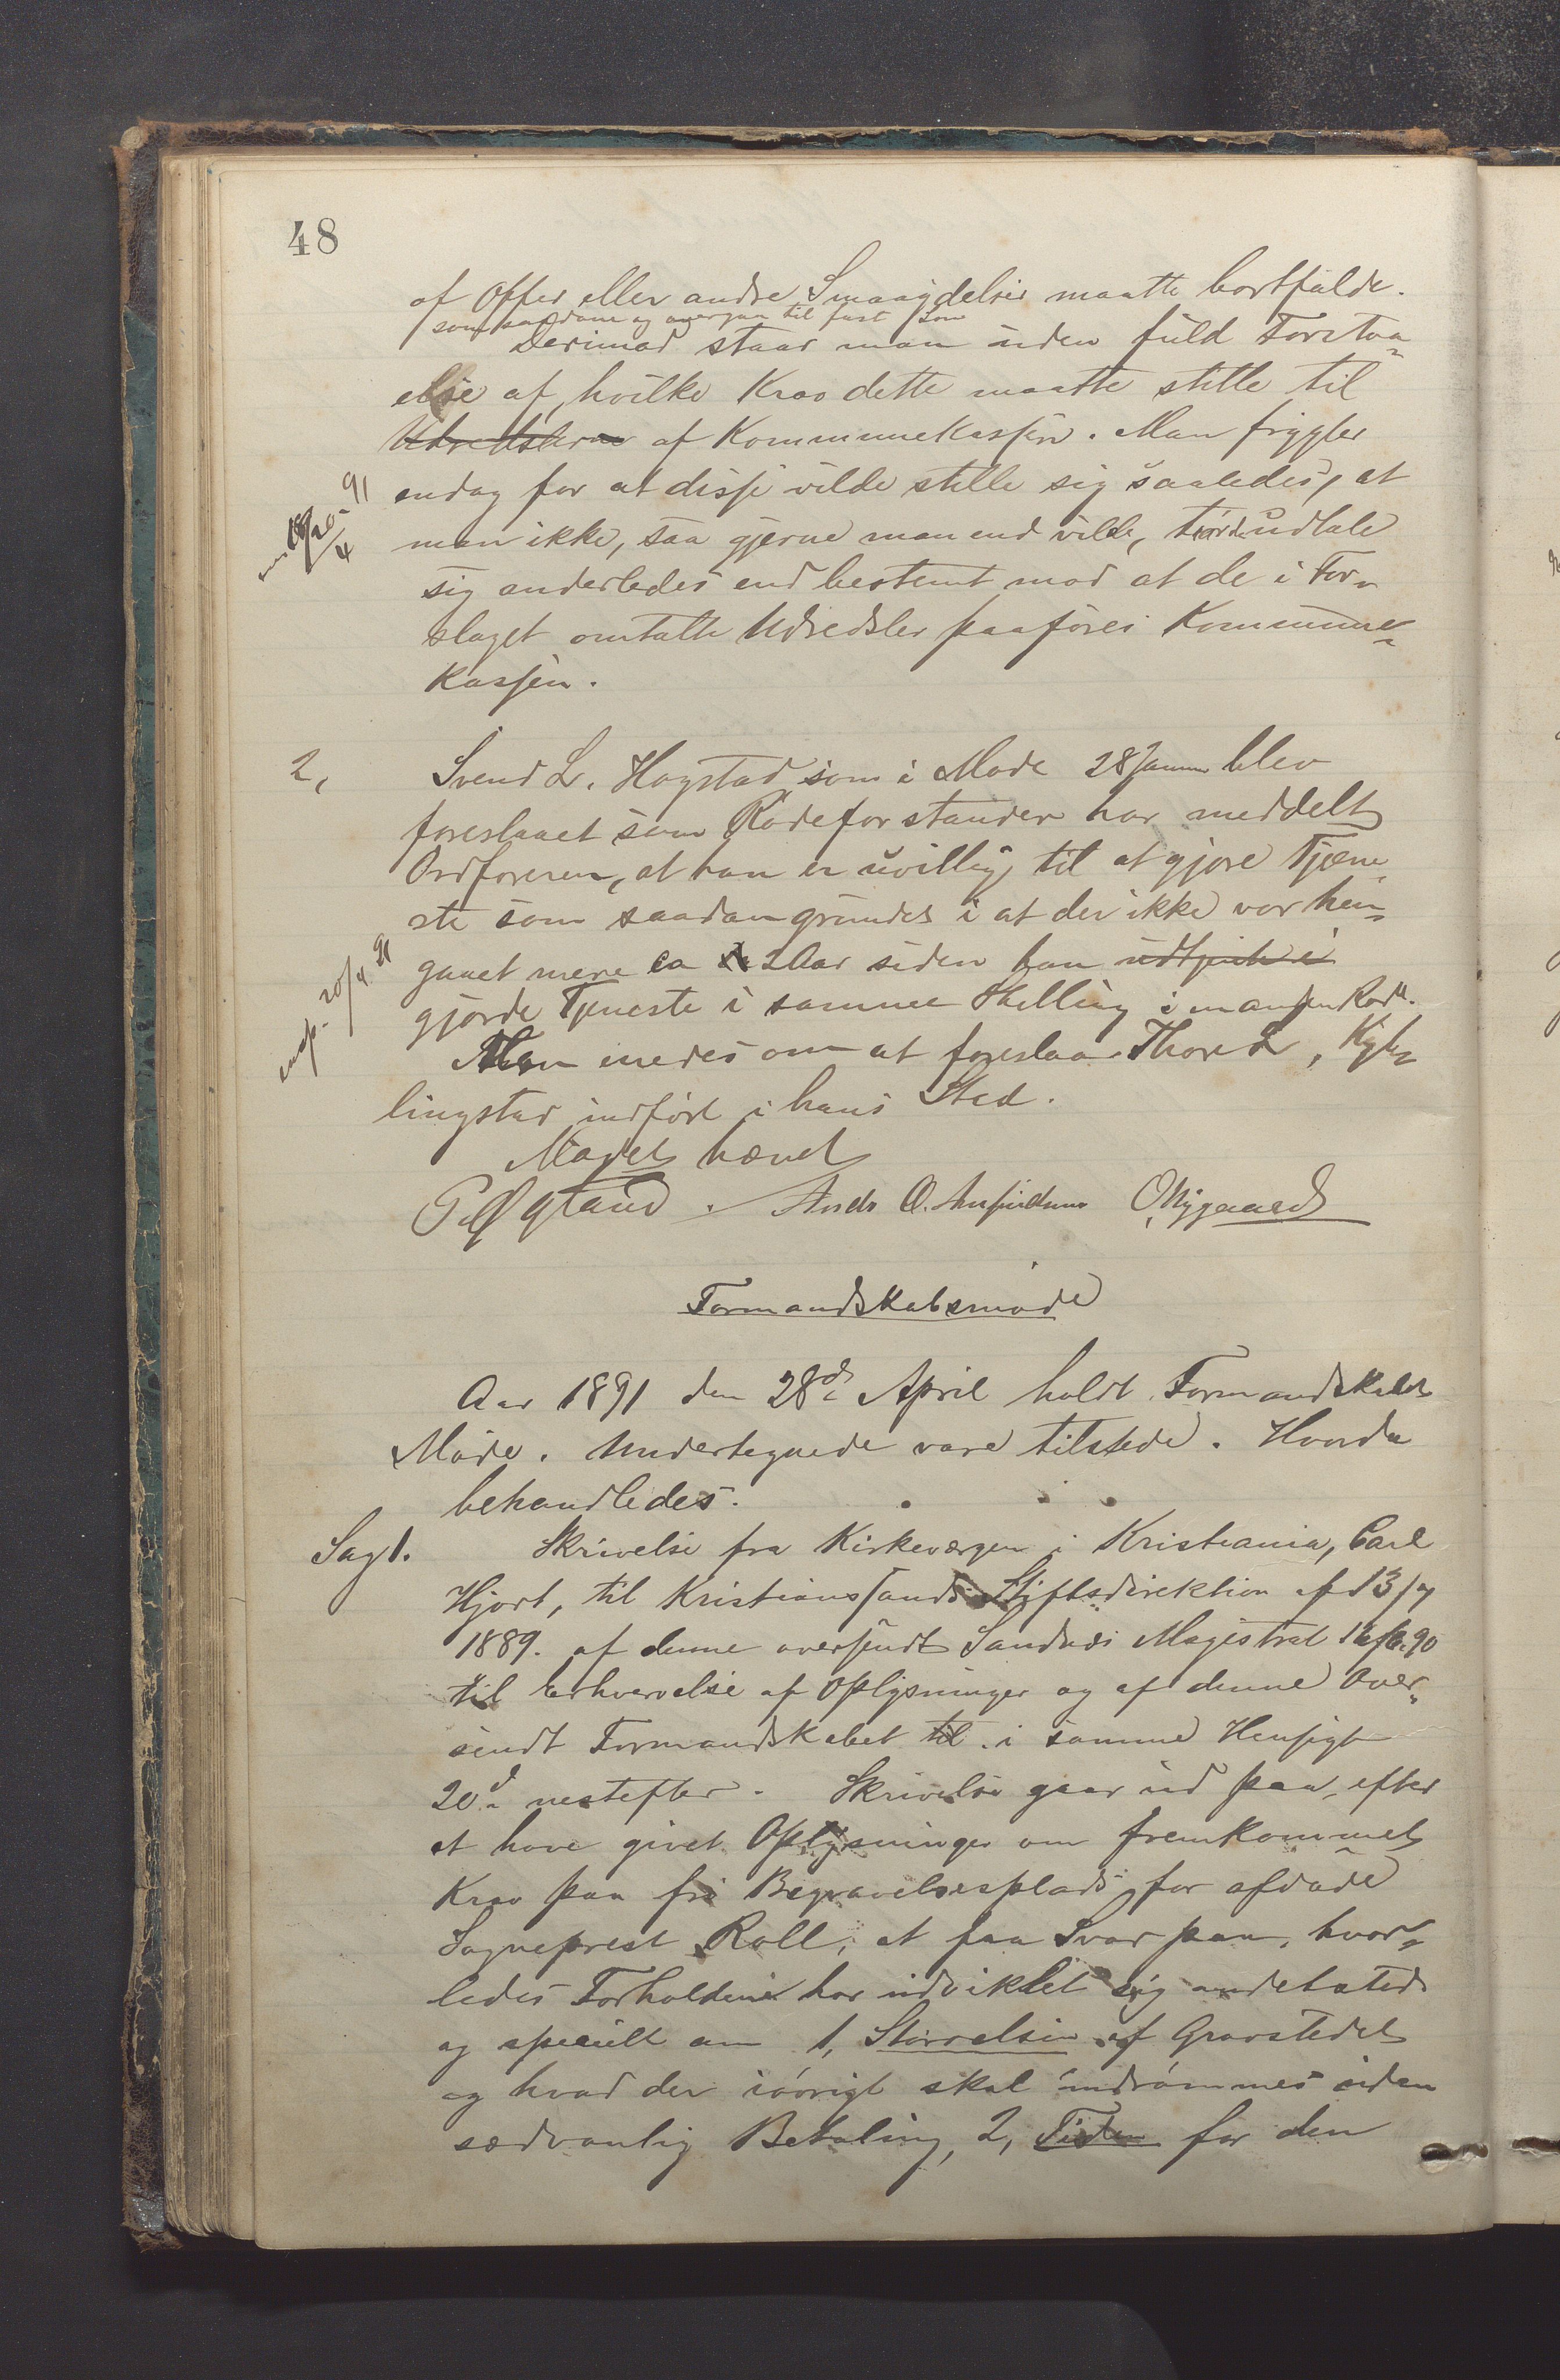 48
af Offer eller andre Smaaydelser maatte bortfalde.
som saadane og overgaa til fast Løn
Derimod staar man uden fuld Forstaa-
else af, hvilke Krav dette maatte stille til
Udredsler af Kommunekassen. Man frygter
endog for at disse vilde stille sig saaledes, at
man ikke, saa gjerne man end vilde, turde udtale
sig anderledes end bestemt mod at de i For-
slaget omtalte Udredsler paaføres Kommune-
kassen.
2, Svend L. Hogstad som i Møde 28 Januar blev
foreslaaet som Rodeforstander har meddelt
Ordføreren, at han er uvillig til at gjøre Tjene-
ste som saadan grundet i at der ikke var hen-
gaaet mere ca 2 Aar siden han
gjorde Tjeneste i samme Stilling i Rode.
Man enedes om at foreslaa Thore L, Kyl-
lingstad indført i hans Sted.
Mødet hævet
Aar 1891 O. Nygaard
Formandskabsmøde
Aar 1891 den 28de April holdt Formandskabet
Møde. Undertegnede vare tilstede. Hvorda
behandledes.
Sag 1. Skrivelse fra Kirkeværgen i Kristiania, Carl
Hjort, til Kristianssands Stiftsdirektion af 13/7
1889. af denne oversendt Sandnæs Magistrat 90
til Erhvervelse af Oplysninger og af denne Over-
sendt Formandskabet til i samme Hensigt
20de nestefter. Skrivelse gaar ud paa, efter
at have givet Oplysninger om fremkommet
Krav paa fri Begravelsesplads for afdøde
Sogneprest Roll, at faa Svar paa, hvor-
ledes Forholdene har udviklet sig andetsteds
og specielt om 1, Størrelsen af Gravstedet
og hvad der iøvrigt skal indrømmes uden
sædvanlig Betaling, 2, Tiden for den